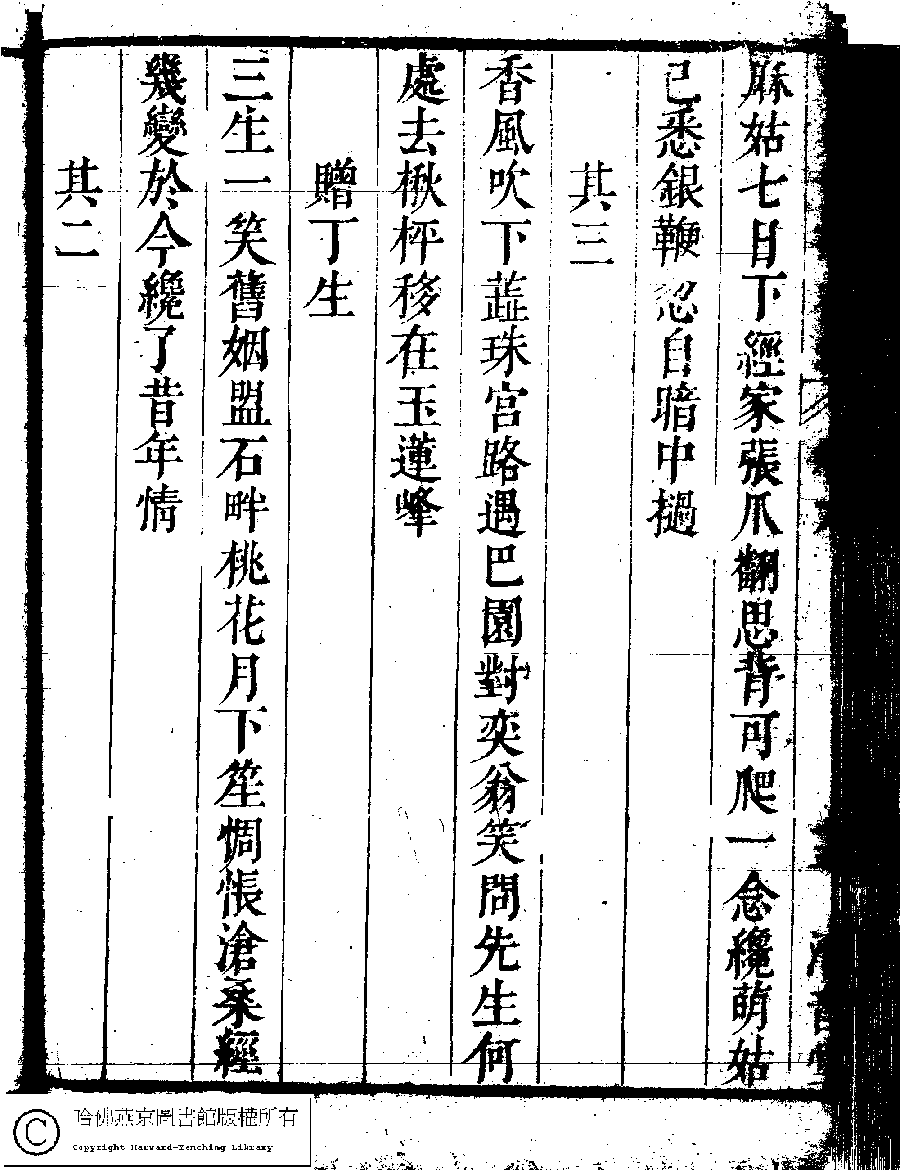 麻姑七日下經家張爪翻思背可爬一念纔萌姑
已悉銀鞭忽自暗中撾
其三
香風吹下蕋珠宮路遇巴園對奕翁笑問先生何
處去楸枰移在玉蓮峰
贈丁生
三生一笑舊姻盟石畔桃花月下笙惆悵滄桑經
幾變於今纔了昔年情
其二
哈佛燕京圖書館版權所有
Copyright Harvard-Yenching Library